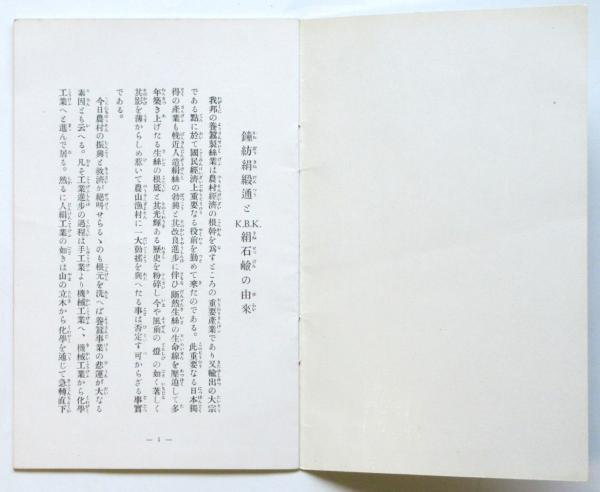 鐘紡絹緞通とK.B.K.絹石鹼の由來
我邦の養蠶製絲業は農村經濟の根幹を爲すところの重要產業であり又輸出の大宗
である點に於て國民經濟上重要なる役前を勤めて來たのである。此重要なる日本獨
得の產業も輓近人造絹絲の勃興と其改良進步に伴ひ斷然生絲の生命線を壓迫して多
年築き上げたる生絲の根底と其光輝ある歷史を粉碎し今や風前の燈の如く著しく
其影を薄からしめ惹いて農山漁村に一大動搖を與へたる事は否定す可からざる事實
である。
今日農村の振興と救濟が絕叫せらるゝのも根元を洗へば養蠶事業の悲運が大なる
素因とも云へる。凡そ工業進步の過程は手工業より機械工業へ、機械工業から化學
工業へと進んで居る。然るに人絹工業の如きは山の立木から化學を通じて急轉直下
— 1 —